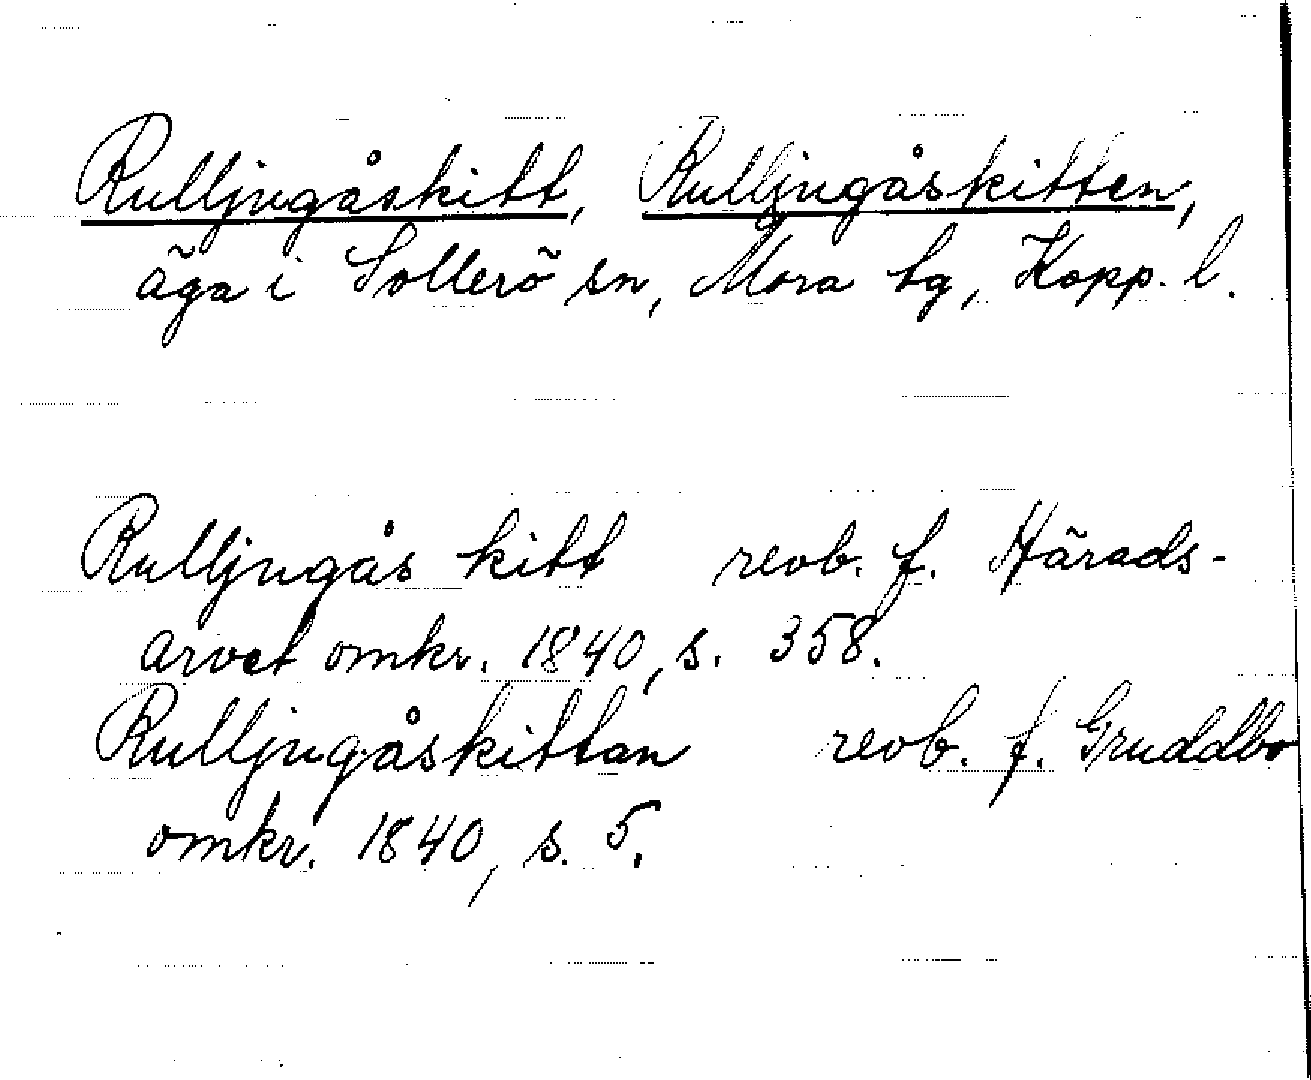 Rulljugåskitt, Rulljugåskitten,
äga i Sollerö sn, Mora tg, Kopp. l.
Rulljugås kitt revb. f. Härads-
arvet omkr. 1840, s. 358.
Rulljugåskittan revb. f. Gruddbo
omkr. 1840, s. 5.